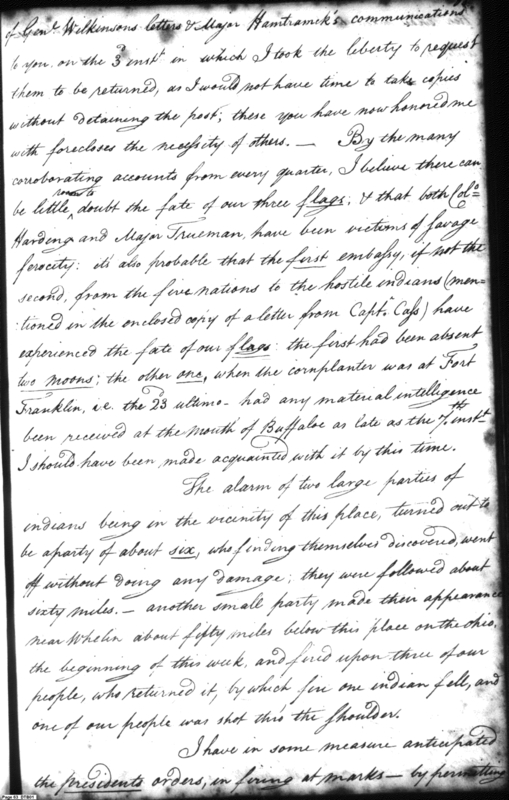 of Genl. Wilkinsons letters & Major Hamtramck's communications
to you on the 3d inst. in which I took the liberty to request
them to be returned, as I would not have time to take copies
without detaining the post; these you have now honored me
with forecloses the necessity of others. — By the many
corroborating accounts from every quarter, I believe there can
be little room to doubt the fate of our three flags; & that both Colo=
Harding and Major Trueman, have been victims of savage
ferocity: it's also probable that the first embassy, if not the
second, from the five nations to the hostile indians (men-
tioned in the enclosed copy of a letter from Capt. Cass) have
experienced the fate of our flags: the first had been absent
two moons; the other one, when the cornplanter was at Fort
Franklin, i.e. the 23d ultimo— had any material intelligence
been received at the mouth of Buffaloe as late as the 7th. inst.
I should have been made acquainted with it by this time.
The alarm of two large parties of
indians being in the vicinity of this place, turned out to
be a party of about six, who finding themselves discovered, went
off without doing any damage; they were followed about
sixty miles. — another small party made their appearance
near Whelin about fifty miles below this place on the ohio,
the beginning of this week, and fired upon three of our
people, who returned it, by which fire one indian fell, and
one of our people was shot thro the shoulder.
I have in some measure anticipated
the presidents orders, in firing at marks — by permitting